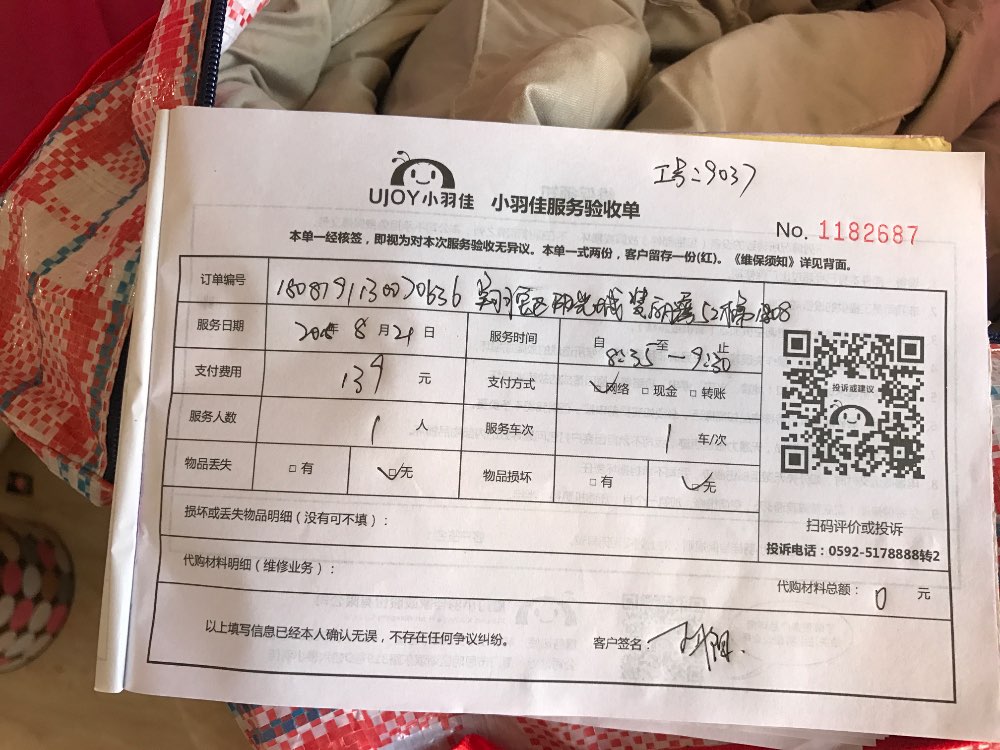 工号:9037
UJOY小羽佳 小羽佳服务验收单
No. 1182687
本单一经核签，即视为对本次服务验收无异议。本单一式两份，客户留存一份(红)。《维保须知》详见背面。
订单编号
服务日期 8月21日 服务时间 自 至 止 8:35—9:30
支付费用 139 元 支付方式 □网络 □现金 □转账
服务人数 1 人 服务车次 1 车/次
物品丢失 □有 □无 物品损坏 □有 □无
投诉或建议
扫码评价或投诉
投诉电话：0592-5178888转2
损坏或丢失物品明细（没有可不填）：
代购材料明细（维修业务）：
代购材料总额： 0 元
以上填写信息已经本人确认无误，不存在任何争议纠纷。 客户签名：